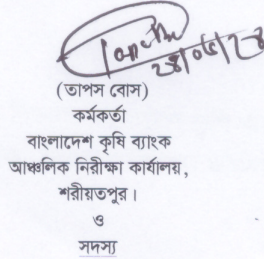 ২৪/০৫/২৪
(তাপস বোস)
কর্মকর্তা
বাংলাদেশ কৃষি ব্যাংক
আঞ্চলিক নিরীক্ষা কার্যালয়,
শরীয়তপুর।
ও
সদস্য